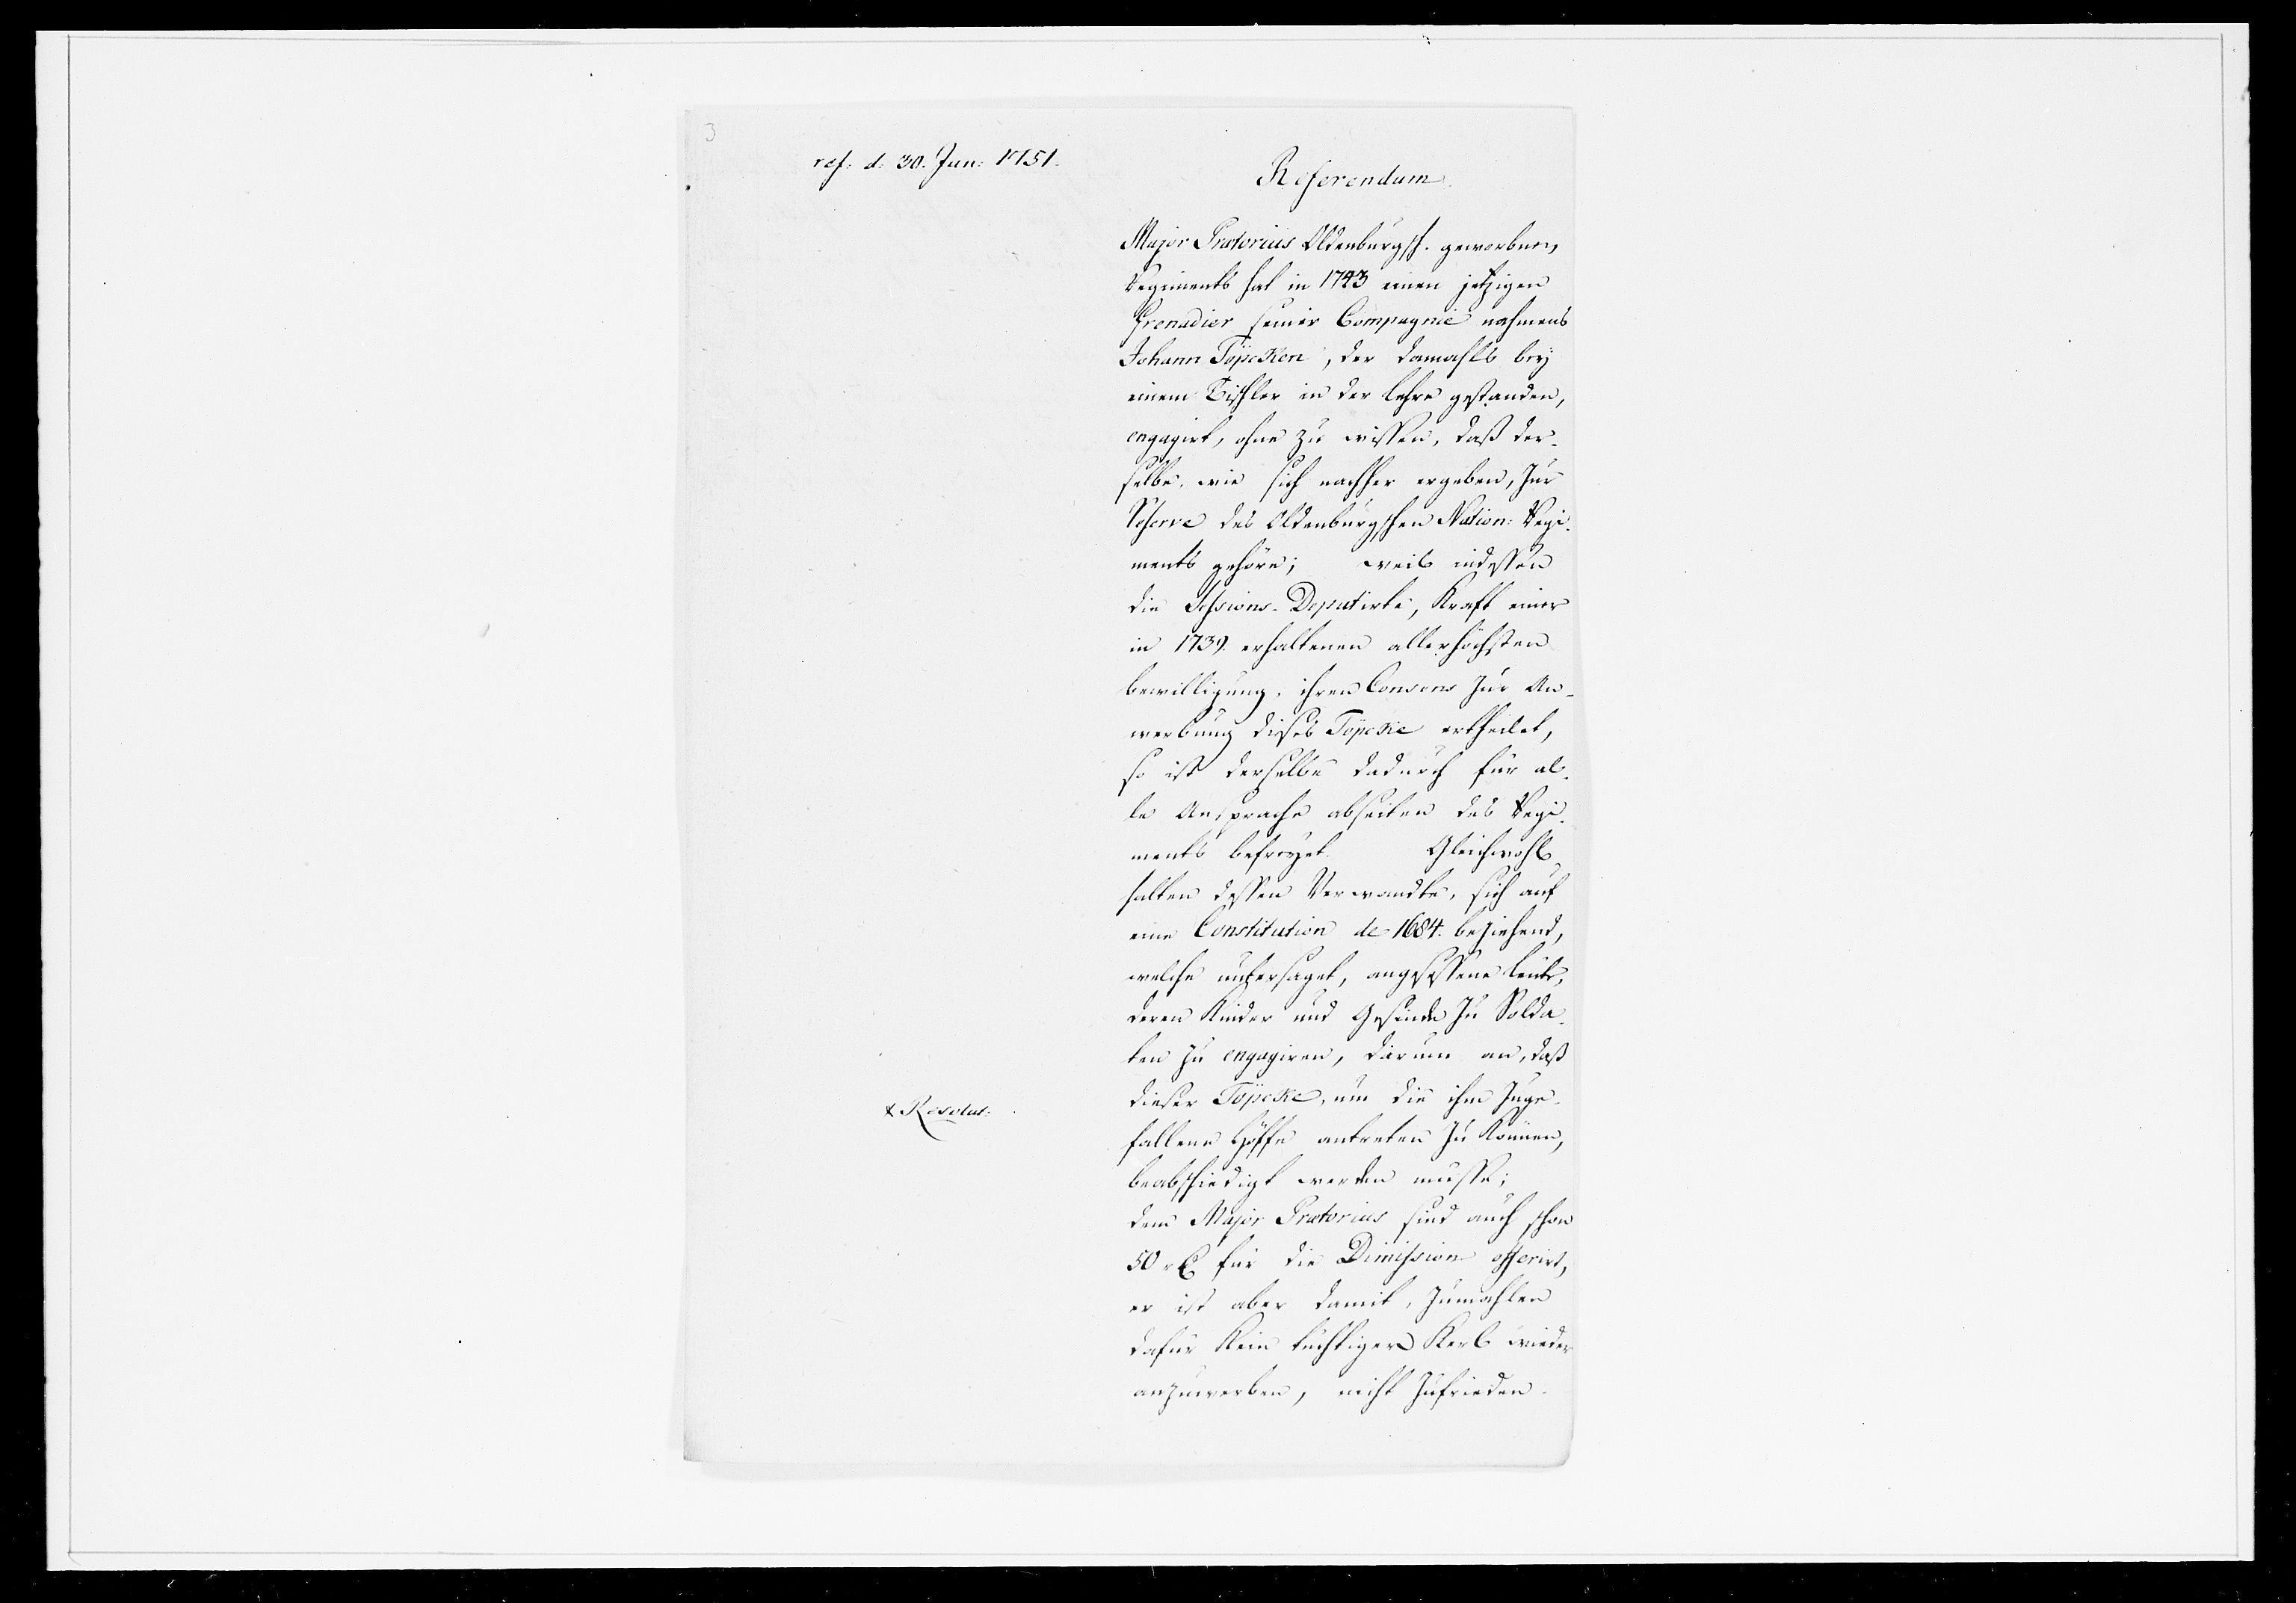 3
ref: d: 30. Jun: 1751.
Referendum.
Major Prætorius Oldenburgsch. geworbnen,
Regiments hat in 1743 einen jetzigen
Grenadier seiner Compagnie nahmens
Johann Töpcken, der damahls beÿ
einem Tischler in der Lehre gestanden,
engagirt, ohne zu wissen, daß der-
selbe, wie sich nachher ergeben, zur
Reserve des Oldenburgschen Nation: Regi-
ments gehöre; weil indessen
die Sessions-Deputirte, Kraft einer
in 1739. erhaltenen allerhöchsten
bewilligung, ihren Consens zur An-
werbung dises Töpcke ertheilet,
so ist derselbe dadurch für al-
le Ansprache abseiten des Regi-
ments befreyet. Gleichwohl
halten dessen Verwandte, sich auf
eine Constitution de 1684. beziehend,
welche untersaget, angesessene Leute,
deren Kinder und Gesinde zu Solda-
ten zu engagiren, darum an, daß
dieser Töpcke, um die ihm zuge-
fallene Höffe antreten zu können,
beabschiedigt werden müsse;
dem Major Prætorius sind auch schon
50 r₡ für die Dimission offerirt,
er ist aber damit, zumahlen
dafür kein tüchtiger Kerl wieder
anzuwerben, nicht zufrieden.
x Resolut: